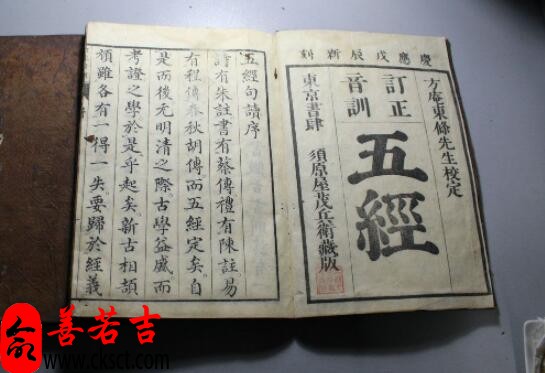 慶應戊辰新刻
方庵東條先生校定
訂正
音訓
五經
東京書肆 須原屋茂兵衛藏版
五經句讀序
詩有朱註書有蔡傳禮有陳註易
有程傳春秋胡傳而五經定矣自
是而後元明清之際古學益盛而
考證之學於是乎起矣新古相頡
頏雖各有一得一失要歸於經義
善若吉
www.cksct.com